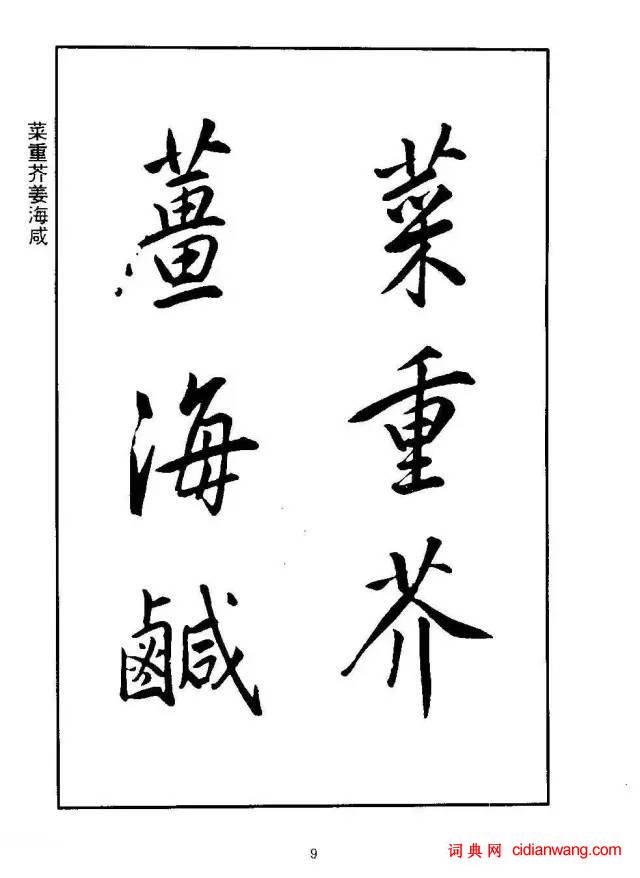 菜重芥
薑海鹹
菜重芥姜海咸
9
词典网 cidianwang.com